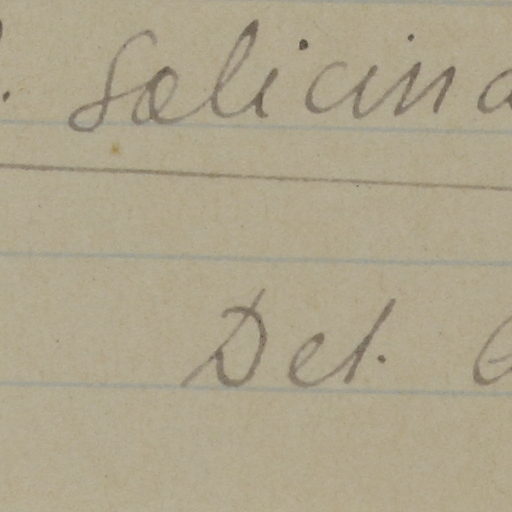 salicina
Det.